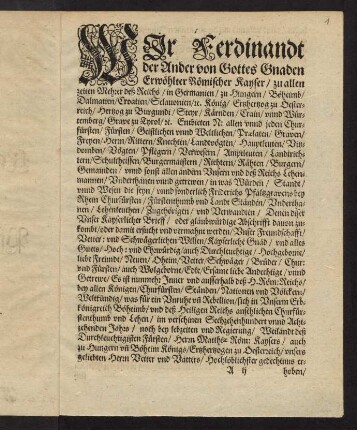 WIr Ferdinandt
der Ander von Gottes Gnaden
Erwöhlter Römischer Kayser / zu allen
zeiten Mehrer deß Reichs / in Germanien / zu Hungern / Böheimb /
Dalmatien / Croatien / Sclavonien / ꝛc. König / Ertzhertzog zu Oester-
reich / Hertzog zu Burgundi / Steyr / Kärnden / Crain / vnnd Wür-
temberg / Grave zu Tyrol / ꝛc. Embieten N. allen vnnd jeden Chur-
fürsten / Fürsten / Geistlichen vnnd Weltlichen / Prælaten / Graven /
Freyen / Herrn / Rittern / Knechten / Landvögten / Hauptleuten / Vitz-
domben / Vögten / Pflegern / Verwesern / Amptleuten / Landtrich-
tern / Schultheissen / Burgermaistern / Richtern / Räthen / Burgern /
Gemainden / vnnd sonst allen andern Vnsern vnd deß Reichs Lehen-
mannen / Vnderthanen vnnd getrewen / in was Würden / Standt /
vnnd Wesen die seyn / vnnd sonderlich Friderichs Pfaltzgravens bey
Rhein Churfürsten / Fürstenthumb vnnd Lande Ständen / Vndertha-
nen / Lehenleuthen / Zugehörigen / vnd Verwandten / Denen diser
Vnser Kayserlicher Brieff / oder glaubwirdige Abschrifft davon zu-
kombt / oder damit ersucht vnd vermahnt werden / Vnser Freundschafft /
Vetter- vnd Schwägerlichen Willen / Kayserliche Gnad / vnd alles
Guets / Hoch- vnd Ehrwürdig / auch Durchleuchtige / Hochgeborne /
liebe Freundt / Neven / Oheim / Vetter / Schwäger / Brüder / Chur-
vnd Fürsten / auch Wolgeborne / Edle / Ersame liebe Andechtige / vnnd
Getrewe / Es ist nunmehr Inner vnd ausserhalb deß H. Röm: Reichs /
bey allen Königen / Churfürsten / Ständen / Nationen vnd Völckern /
Weltkündig / was für ein Vnruhe vnd Rebellion / sich in Vnserm Erb-
königreich Böheimb / vnd deß Heiligen Reichs ansehlichen Churfür-
stenthumb vnd Lehen / im verschinen Sechzehenhundert vnnd Acht-
zehenden Jahrs / noch bey lebzeiten vnd Regierung / Weilandt deß
Durchleuchtigisten Fürsten / Herrn Matthæ Röm: Kaysers / auch
zu Hungern vñ Böheim Königs / Ertzhertzogen zu Oesterreich / vnsers
geliebten Herrn Vetter vnd Vatters / Hochlöblichster gedechtnus er-
A ij hoben /